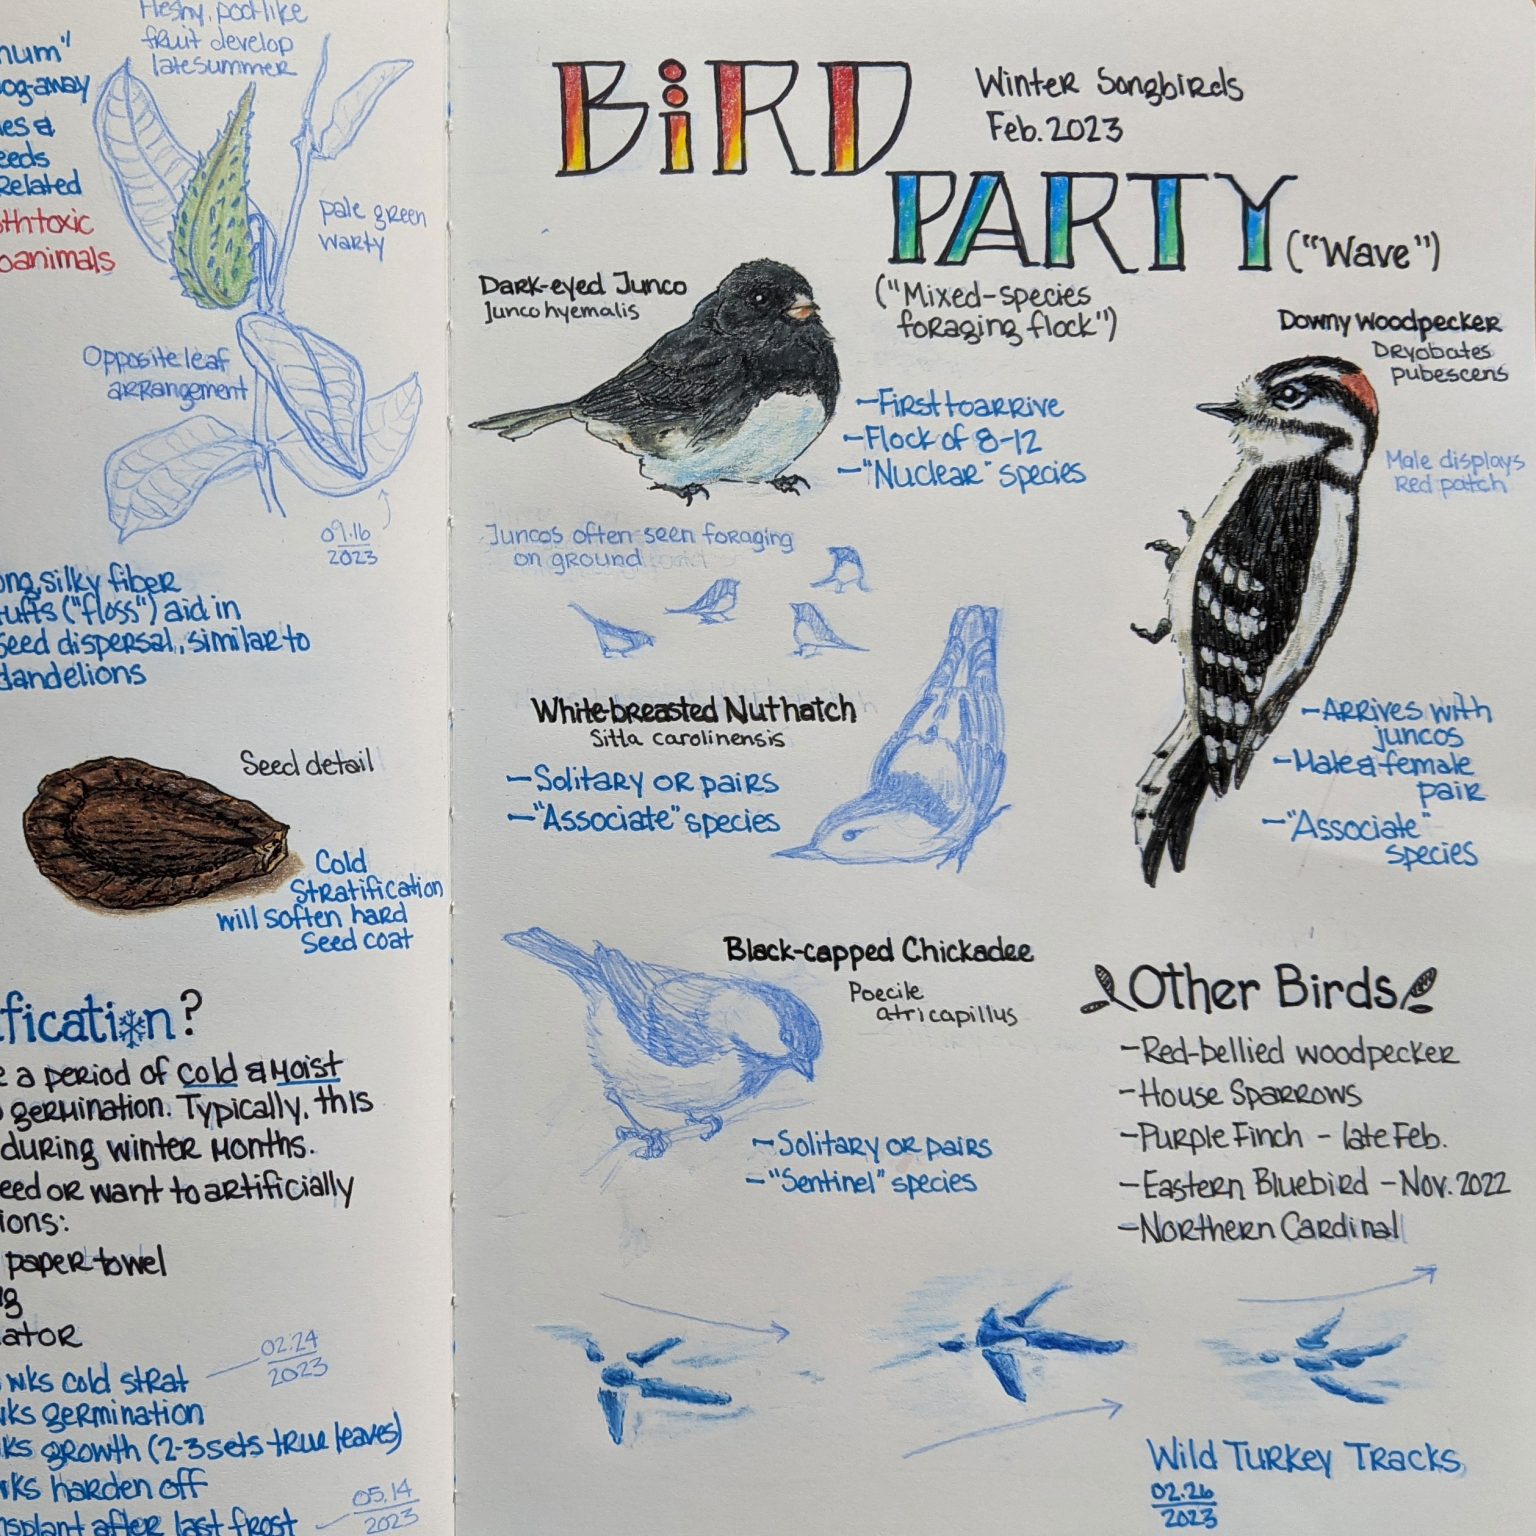 Fleshy, pod-like
fruit develop
late summer
num"
og-away
es &
eeds
Related
oth toxic
o animals
pale green
warty
Opposite leaf
arrangement
09.16
2023
ong, silky fiber
tufts ("floss") aid in
seed dispersal, similar to
dandelions
Seed detail
Cold
Stratification
will soften hard
seed coat
fication?
e a period of cold & moist
germination. Typically, this
during winter months.
eed or want to artificially
ions:
paper towel
g
ator
wks cold strat
02.24
2023
wks germination
ks growth (2-3 sets true leaves)
wks harden off
nsplant after last frost
05.14
2023
BiRD
PARTY
Winter Songbirds
Feb. 2023
("Wave")
("Mixed-species
foraging flock")
Dark-eyed Junco
Junco hyemalis
-First to arrive
-Flock of 8-12
-"Nuclear" species
Juncos often seen foraging
on ground
Downy woodpecker
Dryobates
pubescens
Male displays
Red patch
-Arrives with
juncos
-Male & female
pair
-"Associate"
species
White-breasted Nuthatch
Sitta carolinensis
-Solitary or pairs
-"Associate" species
Black-capped Chickadee
Poecile
atricapillus
-Solitary or pairs
-"Sentinel" species
Other Birds
-Red-bellied woodpecker
-House Sparrows
-Purple Finch - late Feb.
-Eastern Bluebird - Nov. 2022
-Northern Cardinal
Wild Turkey Tracks
02.26
2023